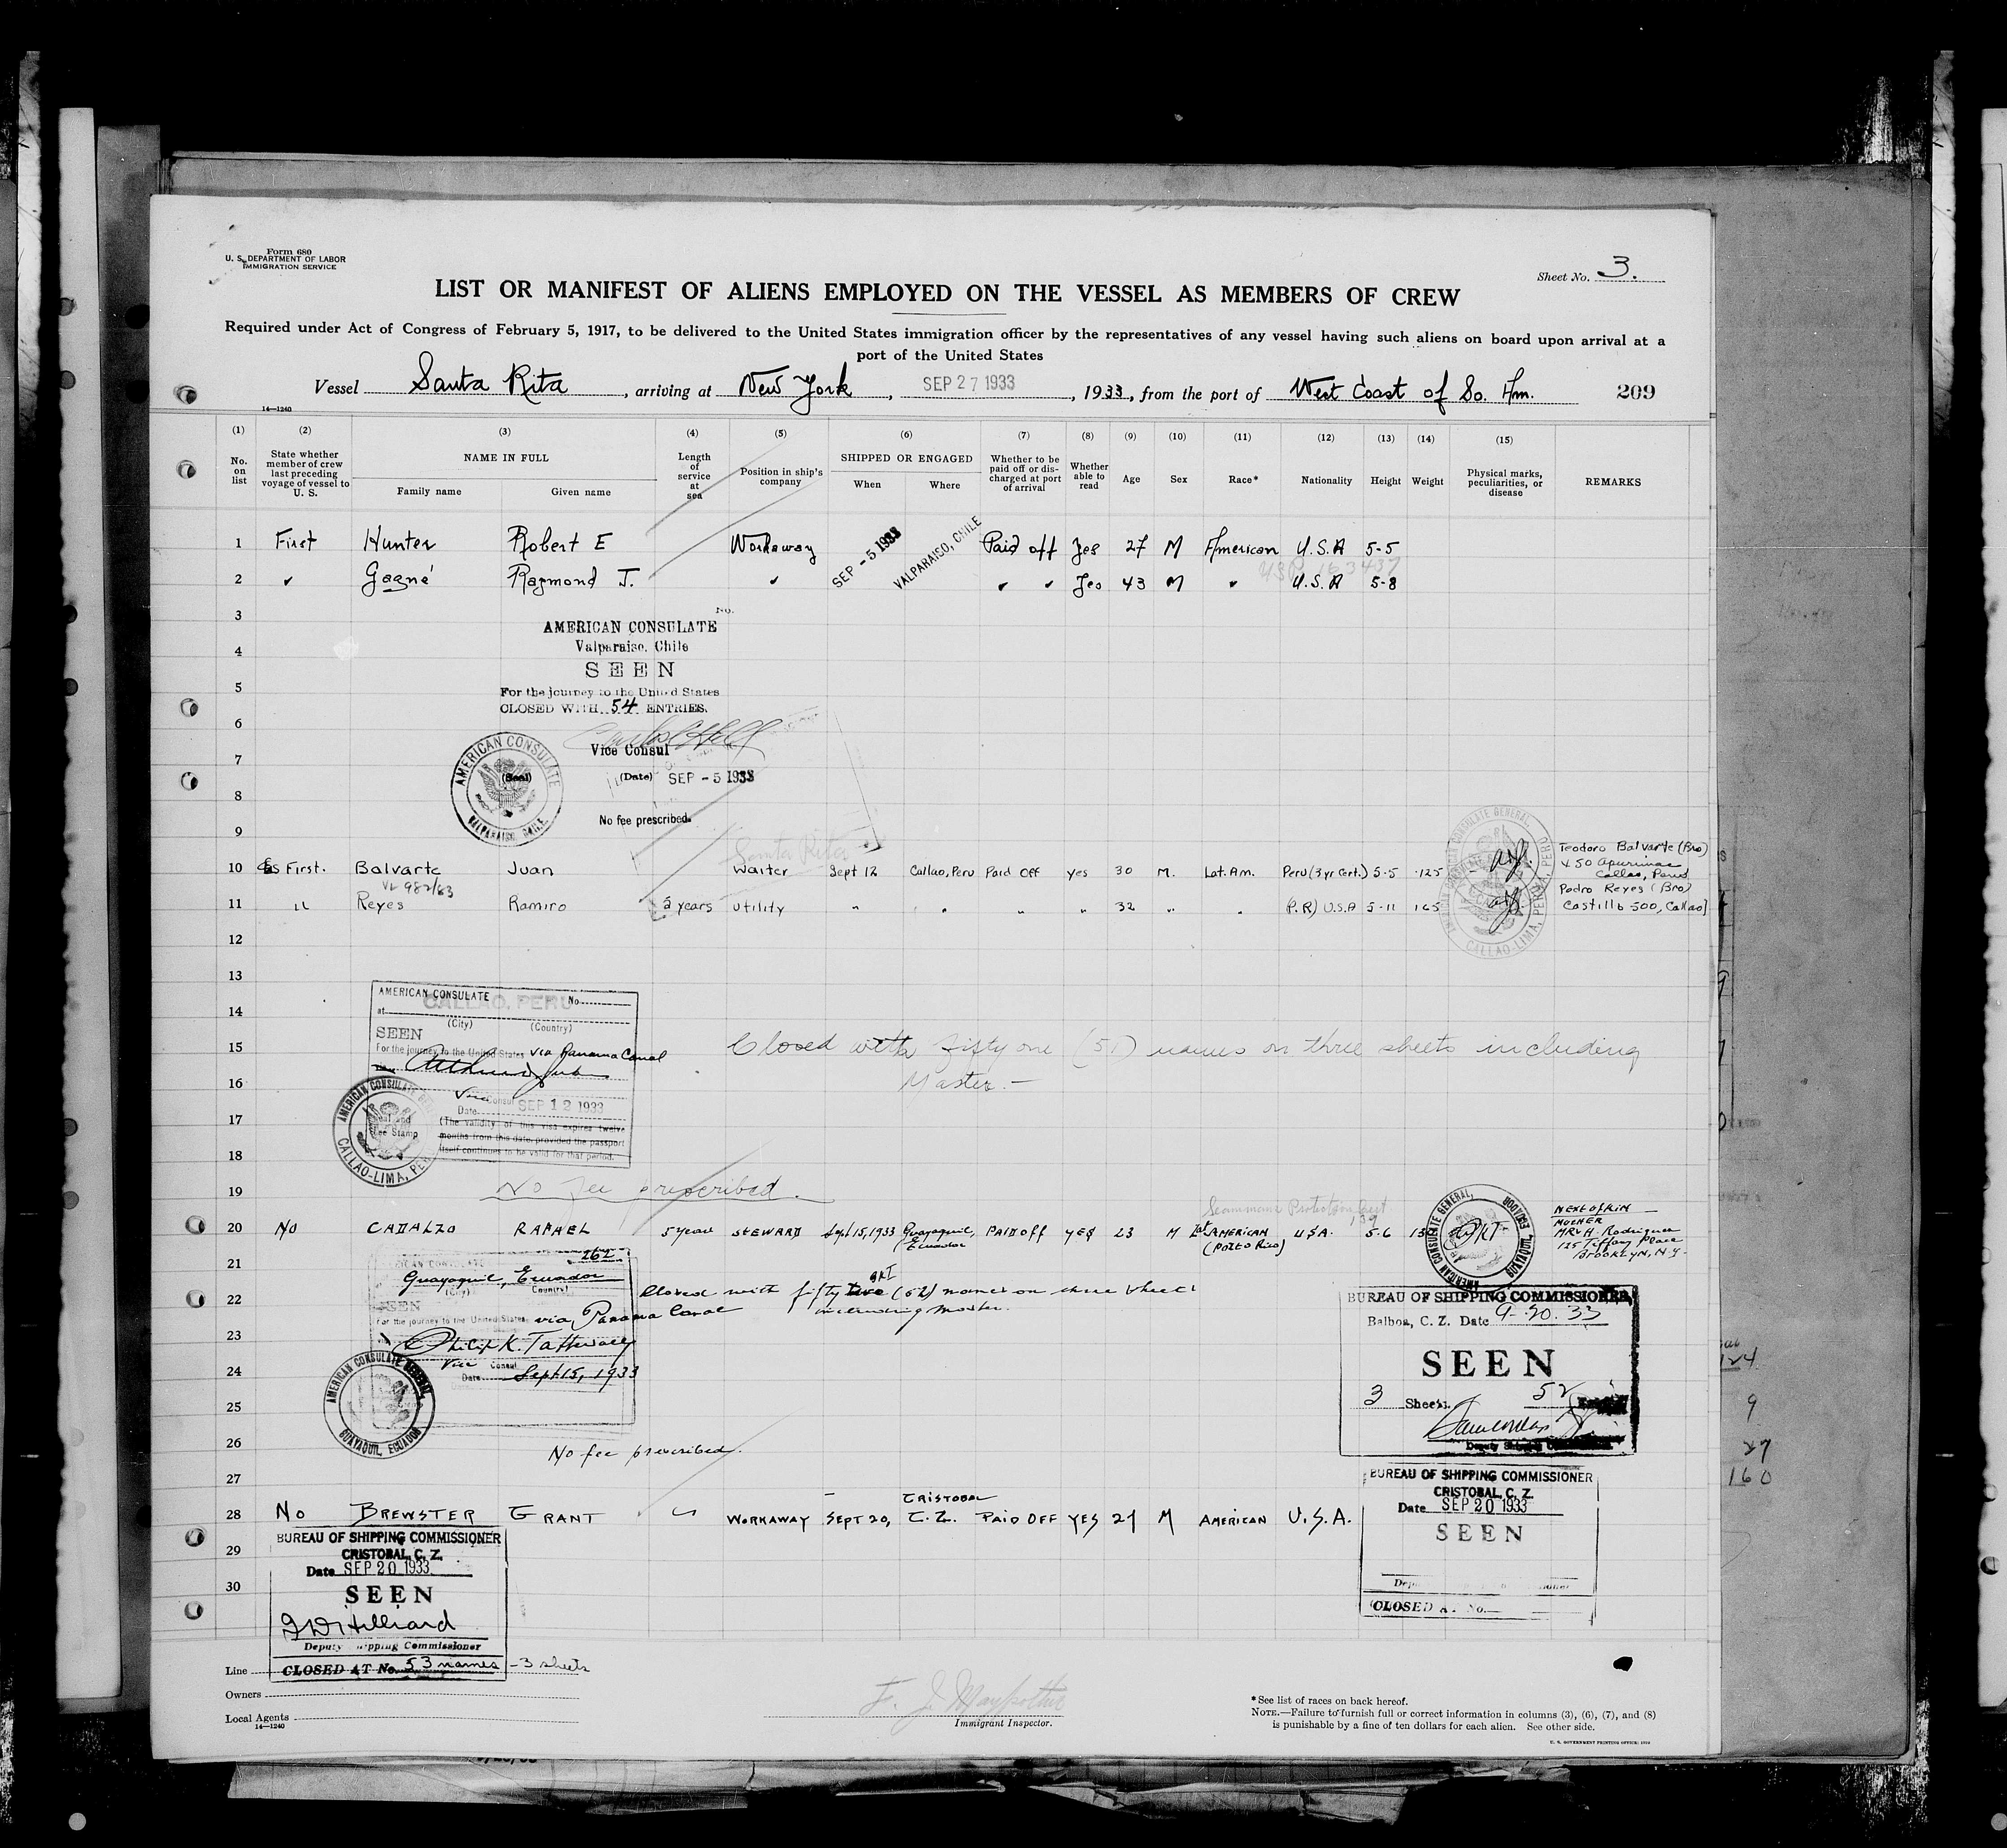 Form 680
U. S. DEPARTMENT OF LABOR
IMMIGRATION SERVICE
Sheet No. 3.
LIST OR MANIFEST OF ALIENS EMPLOYED ON THE VESSEL AS MEMBERS OF CREW
Required under Act of Congress of February 5, 1917, to be delivered to the United States immigration officer by the representatives of any vessel having such aliens on board upon arrival at a
port of the United States
Vessel Santa Rita, arriving at New York, SEP 27 1933, 1933, from the port of West Coast of So. Am. 209
14—1240
(1) (2) (3) (4) (5) (6) (7) (8) (9) (10) (11) (12) (13) (14) (15)
No. on list
State whether member of crew last preceding voyage of vessel to U. S.
NAME IN FULL
Family name Given name
Length of service at sea
Position in ship's company
SHIPPED OR ENGAGED
When Where
Whether to be paid off or discharged at port of arrival
Whether able to read
Age Sex Race* Nationality Height Weight
Physical marks, peculiarities, or disease
REMARKS
1 First Hunter Robert E Workaway SEP -5 1933 VALPARAISO, CHILE Paid off Yes 27 M American U.S.A 5-5
2 Gagné Raymond J. Yes 43 M U.S.A 5-8
3
AMERICAN CONSULATE No.
Valparaiso, Chile
4
SEEN
5
For the journey to the United States
CLOSED WITH 54 ENTRIES.
6
Vice Consul
7
AMERICAN CONSULATE VALPARAISO CHILE
(Seal) (Date) SEP -5 1933
8
No fee prescribed.
9
Santa Rita
10 First. Balvarte Juan Waiter Sept 12 Callao, Peru Paid Off yes 30 M. Lat. Am. Peru (3 yr Cert.) 5-5 125
Teodoro Balvarte (Bro)
450 Apurimac
Callao, Peru
11 " Reyes Ramiro 2 years Utility " " " " 32 " " (P.R) U.S.A 5-11 165
Pedro Reyes (Bro)
Castillo 500, Callao
CALLAO-LIMA, PERU
12
13
AMERICAN CONSULATE No.
CALLAO, PERU
at
(City) (Country)
14
SEEN
15
For the journey to the United States via Panama Canal
Closed with fifty one (51) names on three sheets including
Master.—
16
Vice Consul
Date SEP 12 1933
17
(The validity of this visa expires twelve
months from this date, provided the passport
itself continues to be valid for that period.
Seal and Fee Stamp
AMERICAN CONSULATE GENERAL CALLAO-LIMA, PERU
18
19 No fee prescribed.
20 No CADALZO RAFAEL 5 years STEWARD Sept 15, 1933 Guayaquil, Ecuador PAID OFF YES 23 M AMERICAN (PORTO Rico) U.S.A. 5-6
AMERICAN CONSULATE GENERAL
NEXT OF KIN
MOTHER
MRS H. Rodriguez
125 Tiffany Place
BROOKLYN, N.Y.
262
21
Guayaquil, Ecuador
(City) Country
22
SEEN
Closed with fifty two (52) names on three sheets
including master.
For the journey to the United States via Panama Canal
23
24
Vice Consul
Date Sept 15, 1933
AMERICAN CONSULATE GENERAL, GUAYAQUIL, ECUADOR
25
26 No fee prescribed.
BUREAU OF SHIPPING COMMISSIONER,
Balboa, C. Z. Date 9-20-33
SEEN
3 Sheets. 52
27
BUREAU OF SHIPPING COMMISSIONER
CRISTOBAL, C. Z.
Date SEP 20 1933
SEEN
CLOSED AT No.
28 No BREWSTER GRANT WORKAWAY SEPT 20, CRISTOBAL C.Z. PAID OFF YES 21 M AMERICAN U.S.A.
BUREAU OF SHIPPING COMMISSIONER
29
CRISTOBAL, C. Z.
Date SEP 20 1933
30
SEEN
Hilliard
Deputy Shipping Commissioner
CLOSED AT No. 53 names - 3 sheets
Line
Owners
Local Agents
14—1240
Immigrant Inspector.
*See list of races on back hereof.
NOTE.—Failure to furnish full or correct information in columns (3), (6), (7), and (8)
is punishable by a fine of ten dollars for each alien. See other side.
U. S. GOVERNMENT PRINTING OFFICE